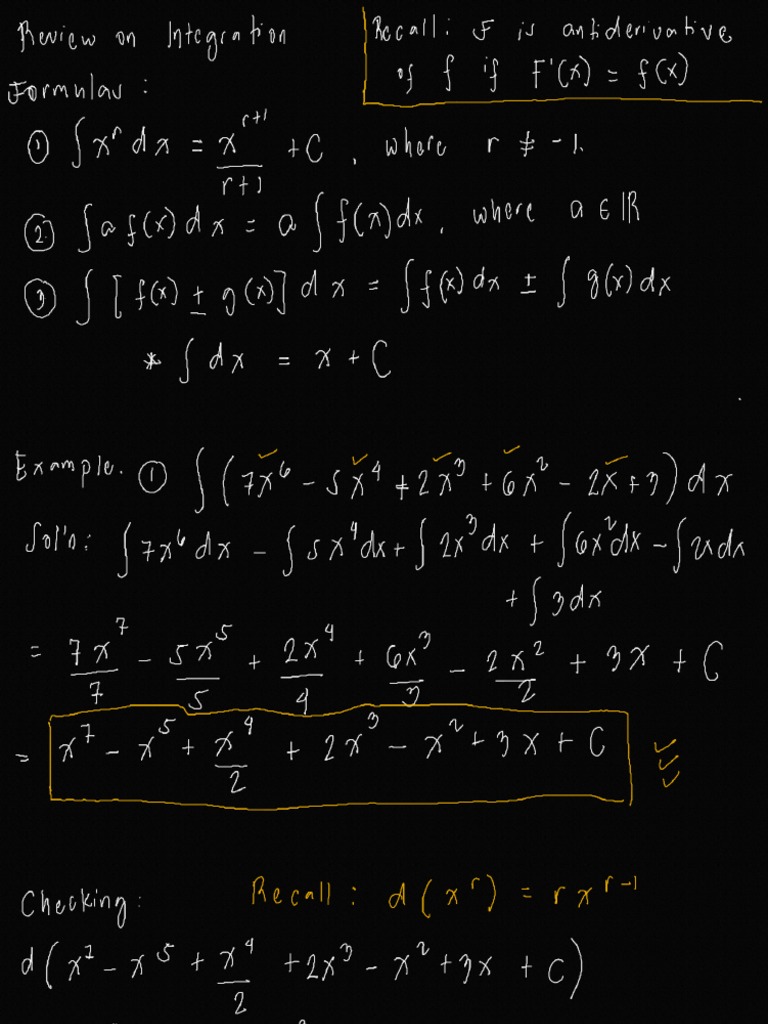 Review on Integration
Recall: F is antiderivative
of f if F'(x) = f(x)
Formulas:
① ∫ xʳ dx = xʳ⁺¹/(r+1) + C, where r ≠ -1.
② ∫ a f(x) dx = a ∫ f(x) dx, where a ∈ ℝ
③ ∫ [f(x) ± g(x)] dx = ∫ f(x) dx ± ∫ g(x) dx
* ∫ dx = x + C
Example. ① ∫ (7x⁶ - 5x⁴ + 2x³ + 6x² - 2x + 3) dx
Sol'n: ∫ 7x⁶ dx - ∫ 5x⁴ dx + ∫ 2x³ dx + ∫ 6x² dx - ∫ 2x dx
+ ∫ 3 dx
= 7x⁷/7 - 5x⁵/5 + 2x⁴/4 + 6x³/3 - 2x²/2 + 3x + C
= x⁷ - x⁵ + x⁴/2 + 2x³ - x² + 3x + C
Checking:
Recall: d(xʳ) = r xʳ⁻¹
d(x⁷ - x⁵ + x⁴/2 + 2x³ - x² + 3x + C)